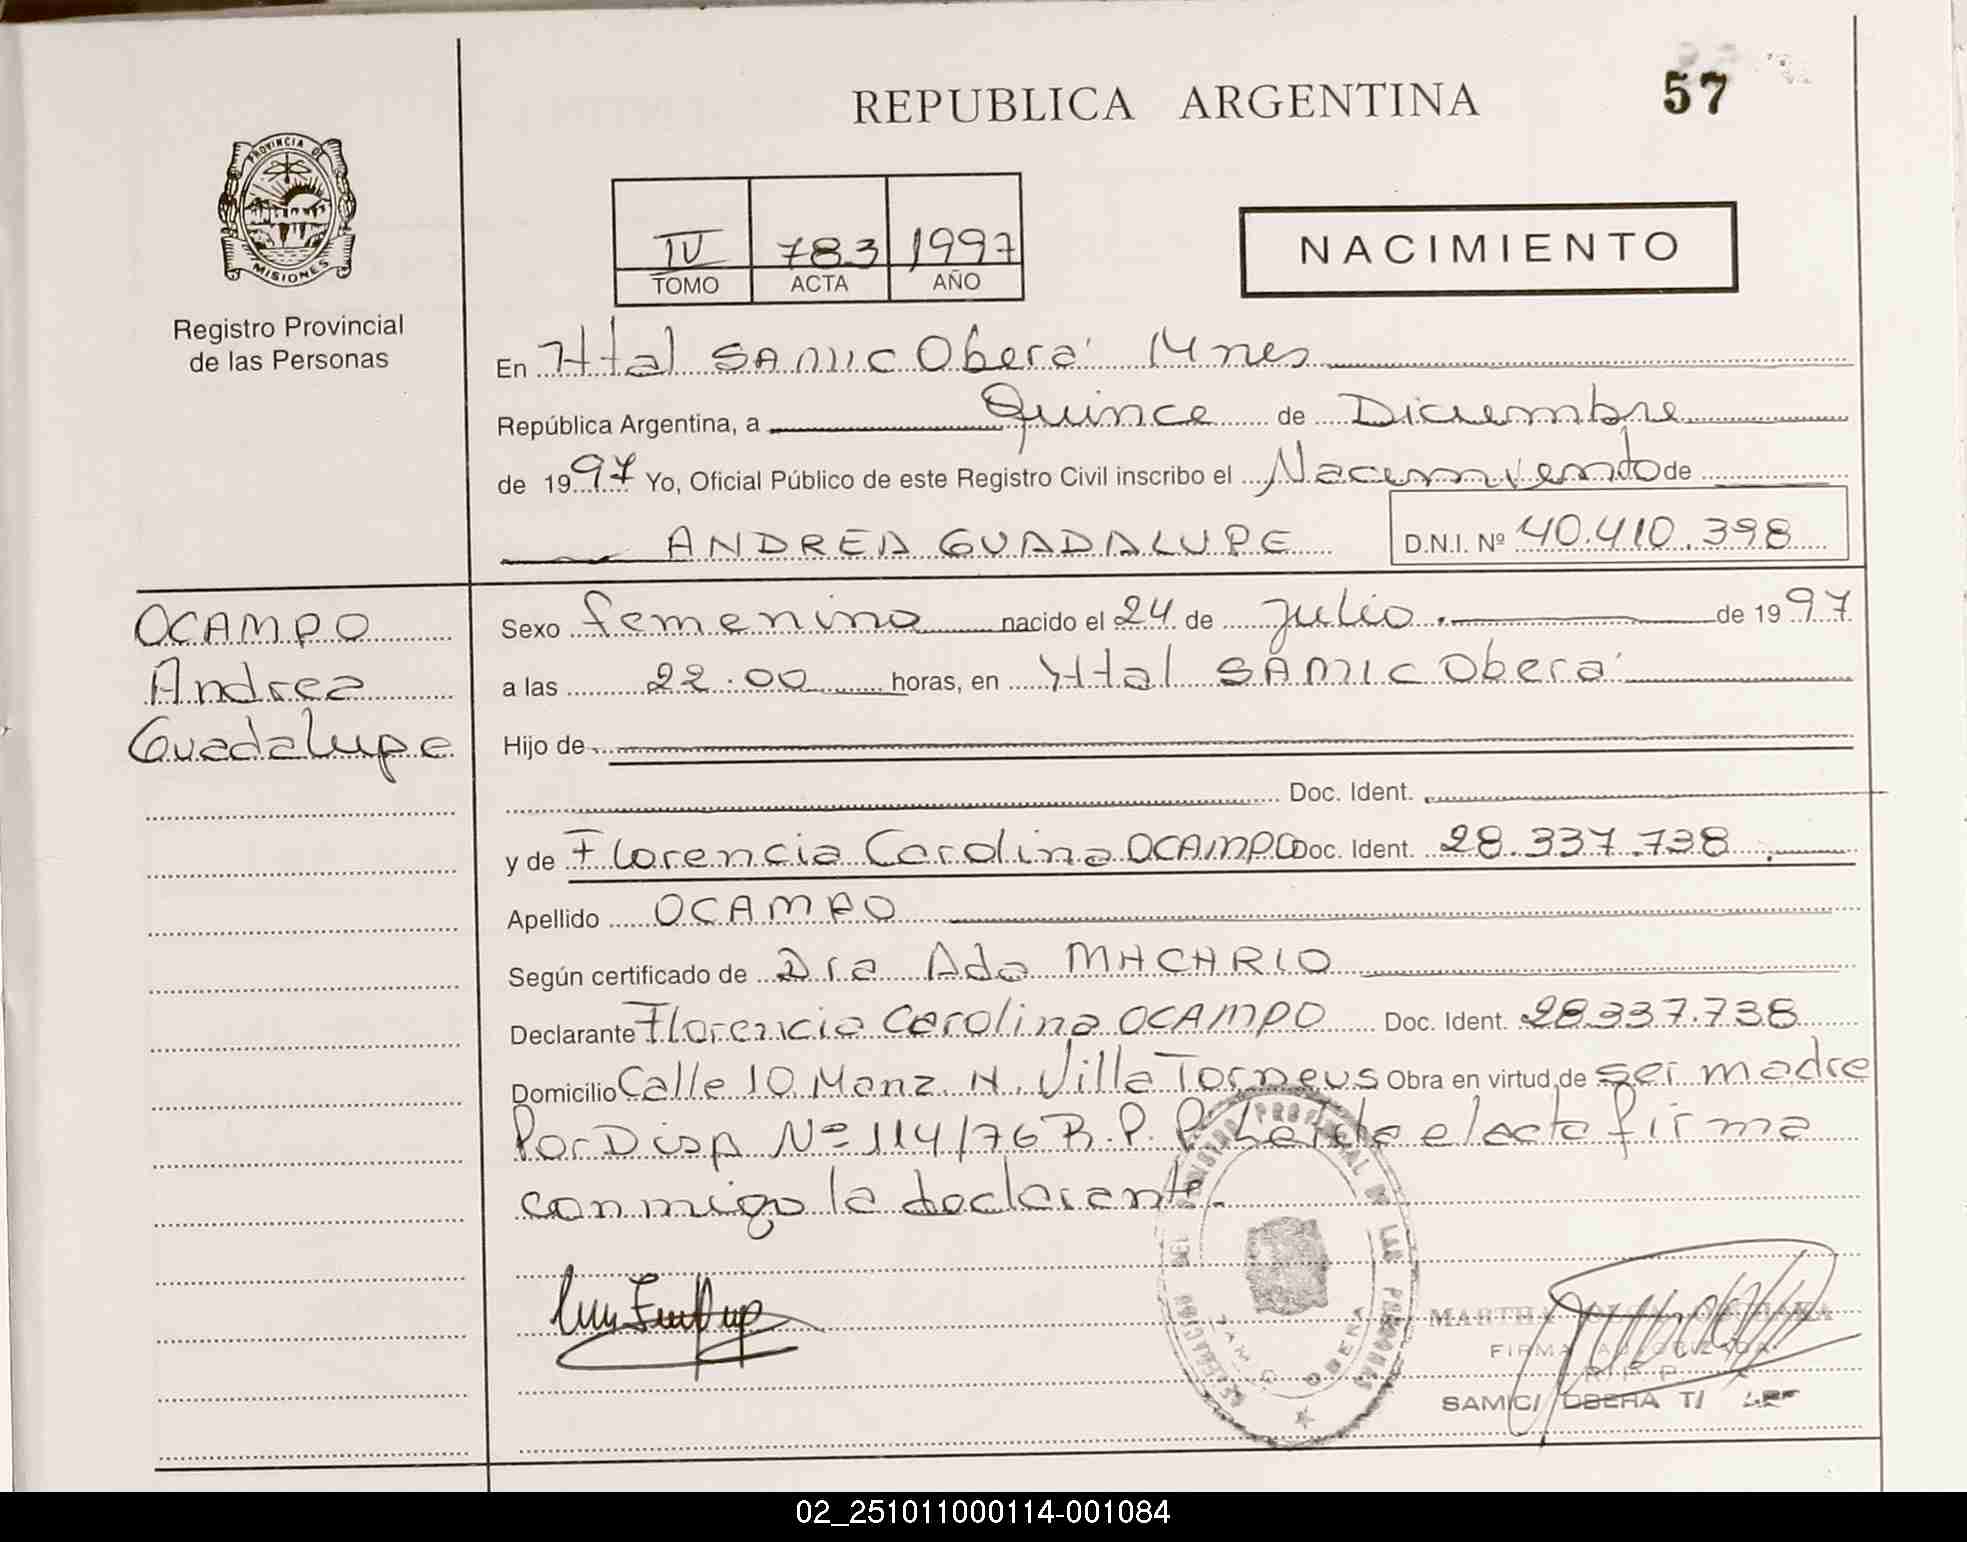 REPUBLICA ARGENTINA
57
PROVINCIA DE
MISIONES
Registro Provincial
de las Personas
IV 783 1997
TOMO ACTA AÑO
NACIMIENTO
En Htal SAMIC Oberá Mnes
República Argentina, a Quince de Diciembre
de 1997 Yo, Oficial Público de este Registro Civil inscribo el Nacimiento de
ANDREA GUADALUPE D.N.I. Nº 40.410.398
OCAMPO
Andrea
Guadalupe
Sexo femenino nacido el 24 de Julio de 1997
a las 22.00 horas, en Htal SAMIC Oberá
Hijo de
Doc. Ident.
y de Florencia Carolina OCAMPO Doc. Ident. 28.337.738
Apellido OCAMPO
Según certificado de Dra Ada MACARIO
Declarante Florencia Carolina OCAMPO Doc. Ident. 28.337.738
Domicilio Calle 10 Manz. N. Villa Torneus Obra en virtud de ser madre
Por Disp Nº 114/76 R.P.P. Leída el acta firma
conmigo la declarante.
DELEGACION DEL REGISTRO PROVINCIAL DE LAS PERSONAS
OBERA
MARTHA
FIRMA AUTORIZADA
R.P.P.
SAMIC/ OBERA T/
02_251011000114-001084